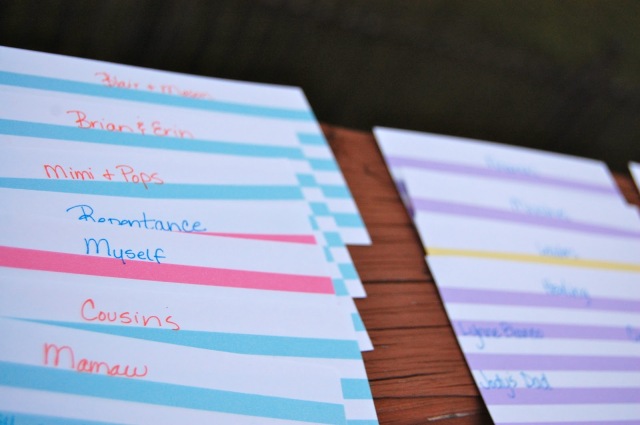 Blair + Mason
Brian & Erin
Mimi + Pops
Repentance
Myself
Cousins
Mamaw
Healing
Lynne Bianco
Jody's Dad